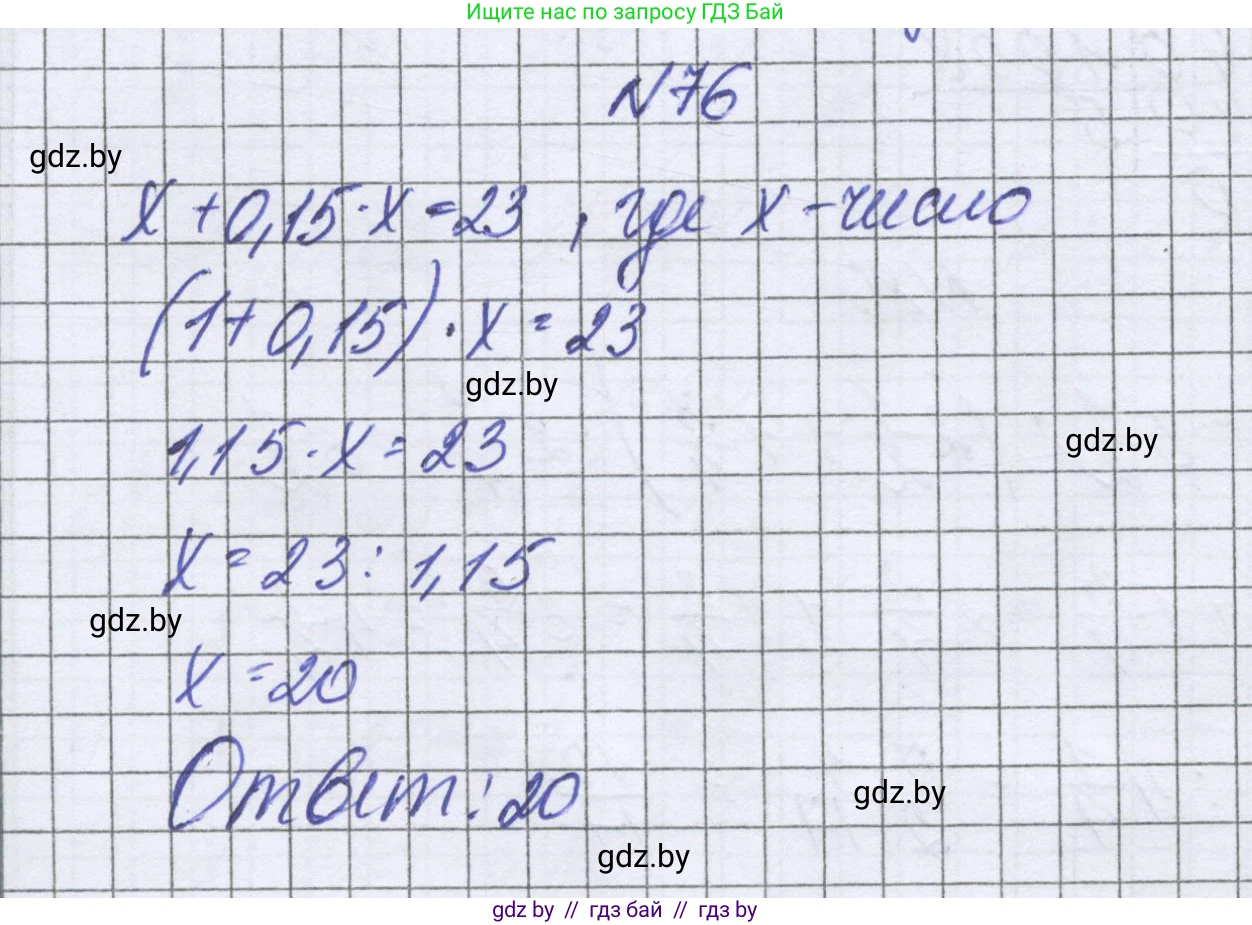 Ищите нас по запросу ГДЗ Бай
N76
gdz.by
x + 0,15 · x = 23 , где x - число
(1 + 0,15) · x = 23
gdz.by
1,15 · x = 23
gdz.by
x = 23 : 1,15
gdz.by
x = 20
Ответ: 20
gdz.by
gdz.by
gdz by // гдз бай // гдз by